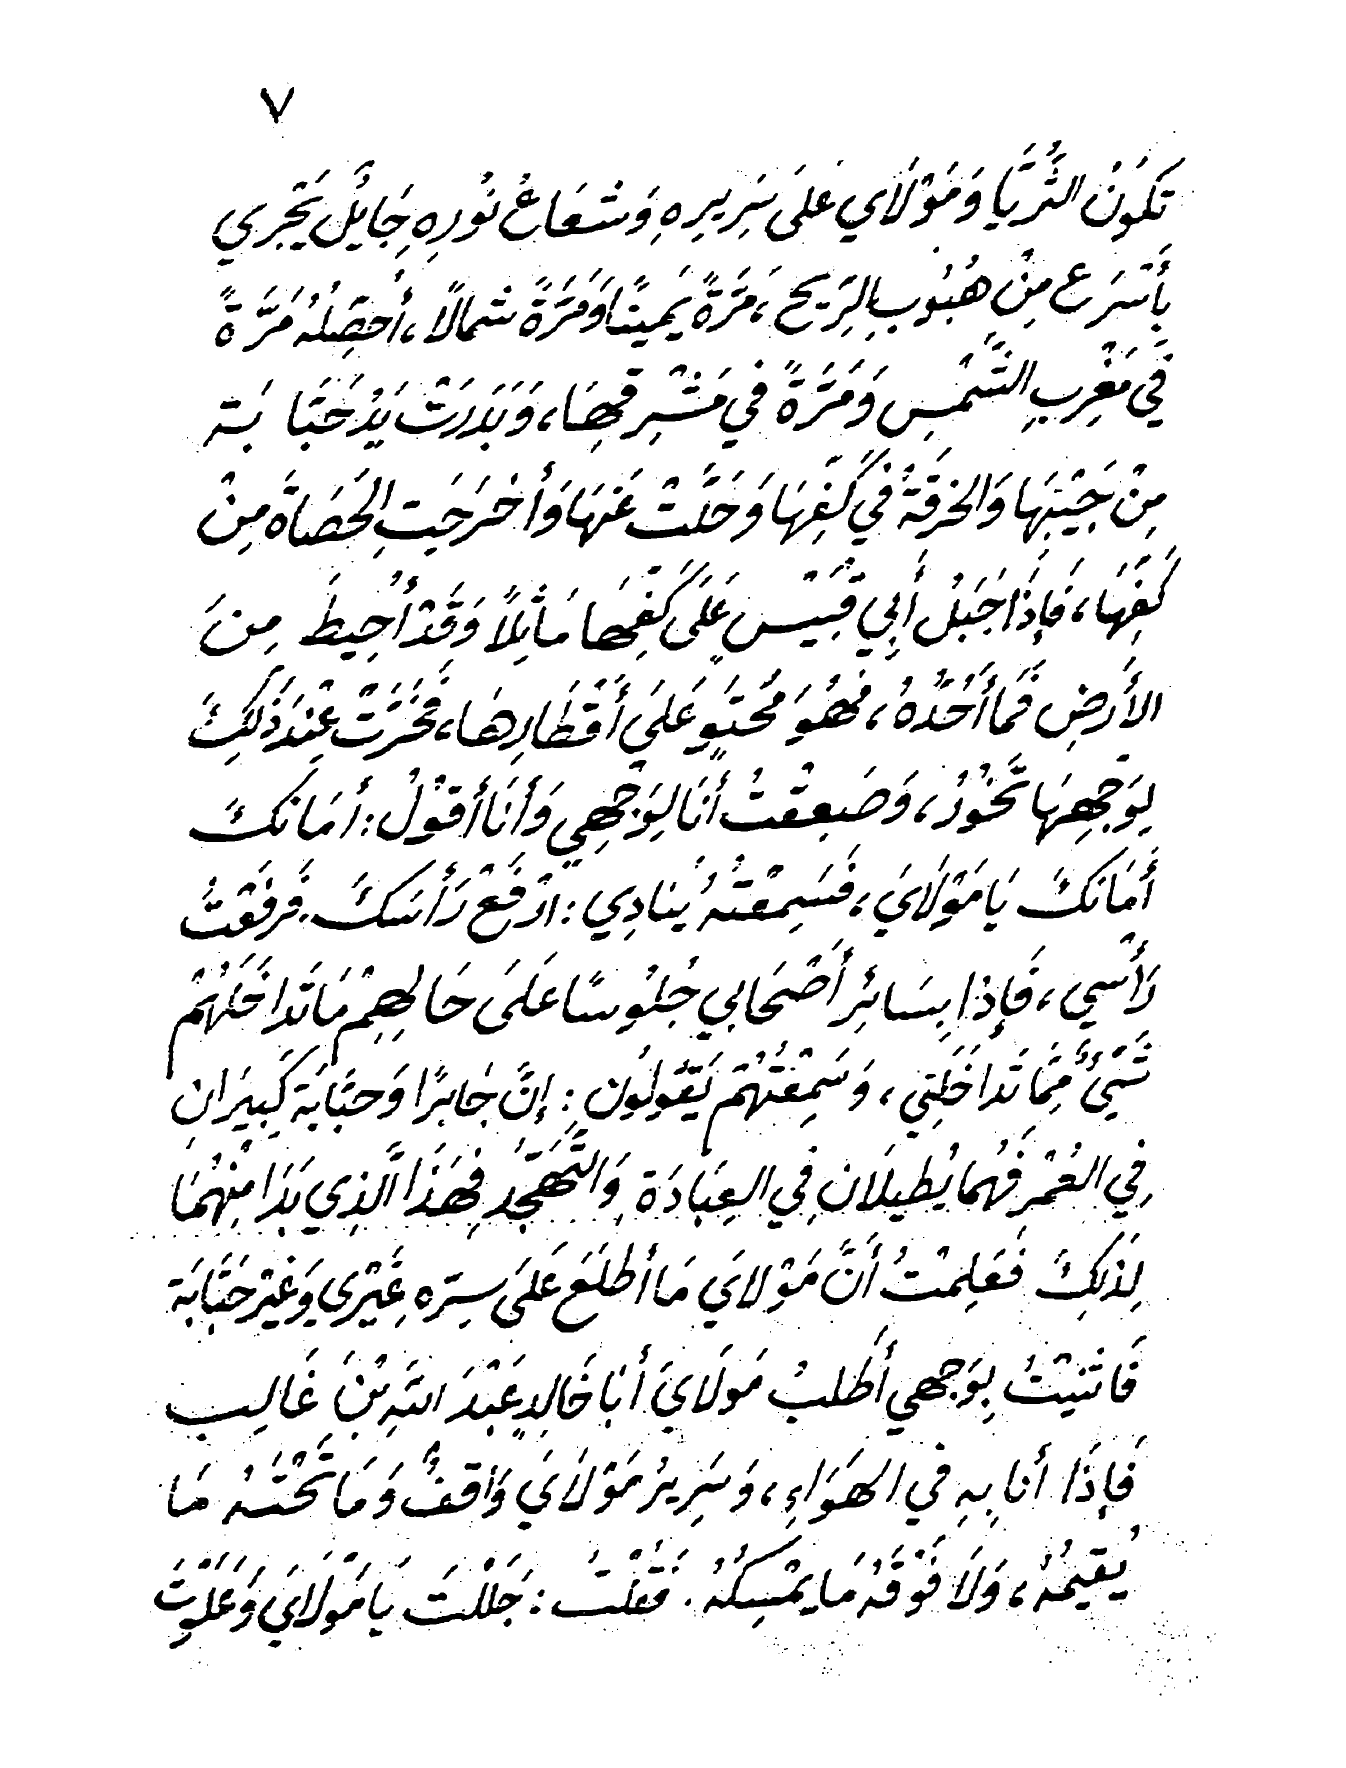 ٧
تَكَوَّنَ الثُّرَيَّا وَمَوْلَاي عَلَى سَرِيرِهِ وَشُعَاعُ نُورِهِ جَايُلٌ يَجْرِي
بِأَسْرَع مِنْ هُبُوبِ الرِّيح ، مَرَّةً يَمِينًا وَمَرَّةً شمالًا ، أُحصِّلهُ مَرَّةً
فِي مَغْرِبِ الشَّمْسِ وَمَرَّةً في مَشْرِقِهَا ، وَبَدَرَتْ يَدُ حَبَّابَة
مِنْ جَيْبِهَا وَالخرقَةُ فِي كَفِّهَا وَحَلَّتْ عَنهَا وَأَخرَجَتِ الحَصَاةَ مِنْ
كَفِّهَا ، فَإِذَا جَبَلُ أَبِي قُبَيْسٍ عَلَى كَفِّهَا مَاثِلاً وَقَدْ أُحِيطَ مِنَ
الأَرضِ فَمَا أَحُدُّهُ ، فَهُوَ مُحتَوٍ عَلَى أَقْطَارِهَا ، فَخَرَّتْ عِنْدَ ذَلِكَ
لِوَجْهِهَا تَّخُورُ ، وَصَعِقْتُ أَنَا لِوَجْهِي وَأَنَا أَقُولُ : أَمَانَكَ
أَمَانَكَ يَا مَوْلَايَ ، فَسَمِعْتُهُ يُنَادِي : ارْفَعْ رَأْسَكَ . فَرَفَعْتُ
رَأْسِي ، فَإِذَا بِسَائِرِ أَصْحَابِي جُلُوسًا عَلَى حَالِهِمْ مَا تَدَاخَلَهُمْ
شَيْئٌ مِمَّا تَدَاخَلَنِي ، وَسَمِعْتُهُمْ يَقُولُون : إِنَّ جَابرًا وَحَبَّابَة كَبِيرَانِ
فِي العُمْرِ فَهُمَا يُطِيلَان فِي العِبَادَة وَالتَّهَجُّدِ فَهَذَا الَّذِي بَدَا مِنْهُمَا
لِذَلِكَ فَعَلِمْتُ أَنَّ مَوْلايَ مَا أَطْلَعَ عَلَى سِرِّهِ غَيْرِي وَغَيْرَ حَبَّابَة
فَانثَنيْتُ بِوَجهي أَطْلبُ مَولَايَ أَبَا خَالِدٍ عَبْدَ اللهِ بْنَ غَالِب
فَإِذَا أَنا بِهِ فِي الهَوَاءِ ، وَسَرِيرُ مَوْلَايَ وَاقفٌ وَمَا تَحْتَهُ مَا
يُقيمُهُ ، وَلَا فَوْقَهُ مَا يمْسِكُهُ . فَقُلْتُ : جَلَلْتَ يَا مَوْلَايَ وَعَلَوْتَ